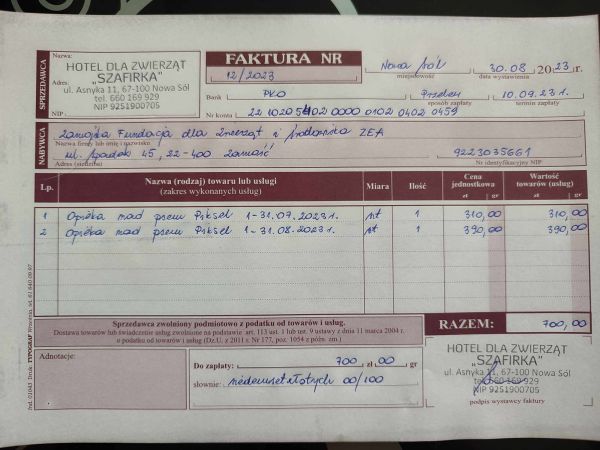 Nazwa:
HOTEL DLA ZWIERZĄT
„SZAFIRKA"
Adres:
ul. Asnyka 11, 67-100 Nowa Sól
tel. 660 169 929
NIP 9251900705
NIP
SPRZEDAWCA
FAKTURA NR
12/2023
Nowa Sól
miejscowość
30.08 2023 r.
data wystawienia
Bank PKO
Przelew
sposób zapłaty
10.09.23 r.
termin zapłaty
Nr konta 22 1020 5402 0000 0102 0402 0459
NABYWCA
Zamojska Fundacja dla Zwierząt i Środowiska ZEA
Nazwa firmy lub imię i nazwisko
45, 22-400 Zamość
Adres (siedziba)
9223035661
Nr identyfikacyjny NIP
Lp. Nazwa (rodzaj) towaru lub usługi (zakres wykonanych usług) Miara Ilość Cena jednostkowa zł gr Wartość towarów (usług) zł gr
1 Opieka nad psem Piksel 1-31.07.2023 r. 1 310,00 310,00
2 Opieka nad psem Piksel 1-31.08.2023 r. 1 390,00 390,00
Sprzedawca zwolniony podmiotowo z podatku od towarów i usług.
Dostawa towarów lub świadczenie usług zwolnione na podstawie art. 113 ust. 1 lub ust. 9 ustawy z dnia 11 marca 2004 r.
o podatku od towarów i usług (Dz.U. z 2011 r. Nr 177, poz. 1054 z późn. zm.)
RAZEM: 700,00
Adnotacje:
Do zapłaty: 700 zł 00 gr
słownie: siedemset złotych 00/100
HOTEL DLA ZWIERZĄT
„SZAFIRKA"
ul. Asnyka 11, 67-100 Nowa Sól
tel. 660 169 929
NIP 9251900705
podpis wystawcy faktury